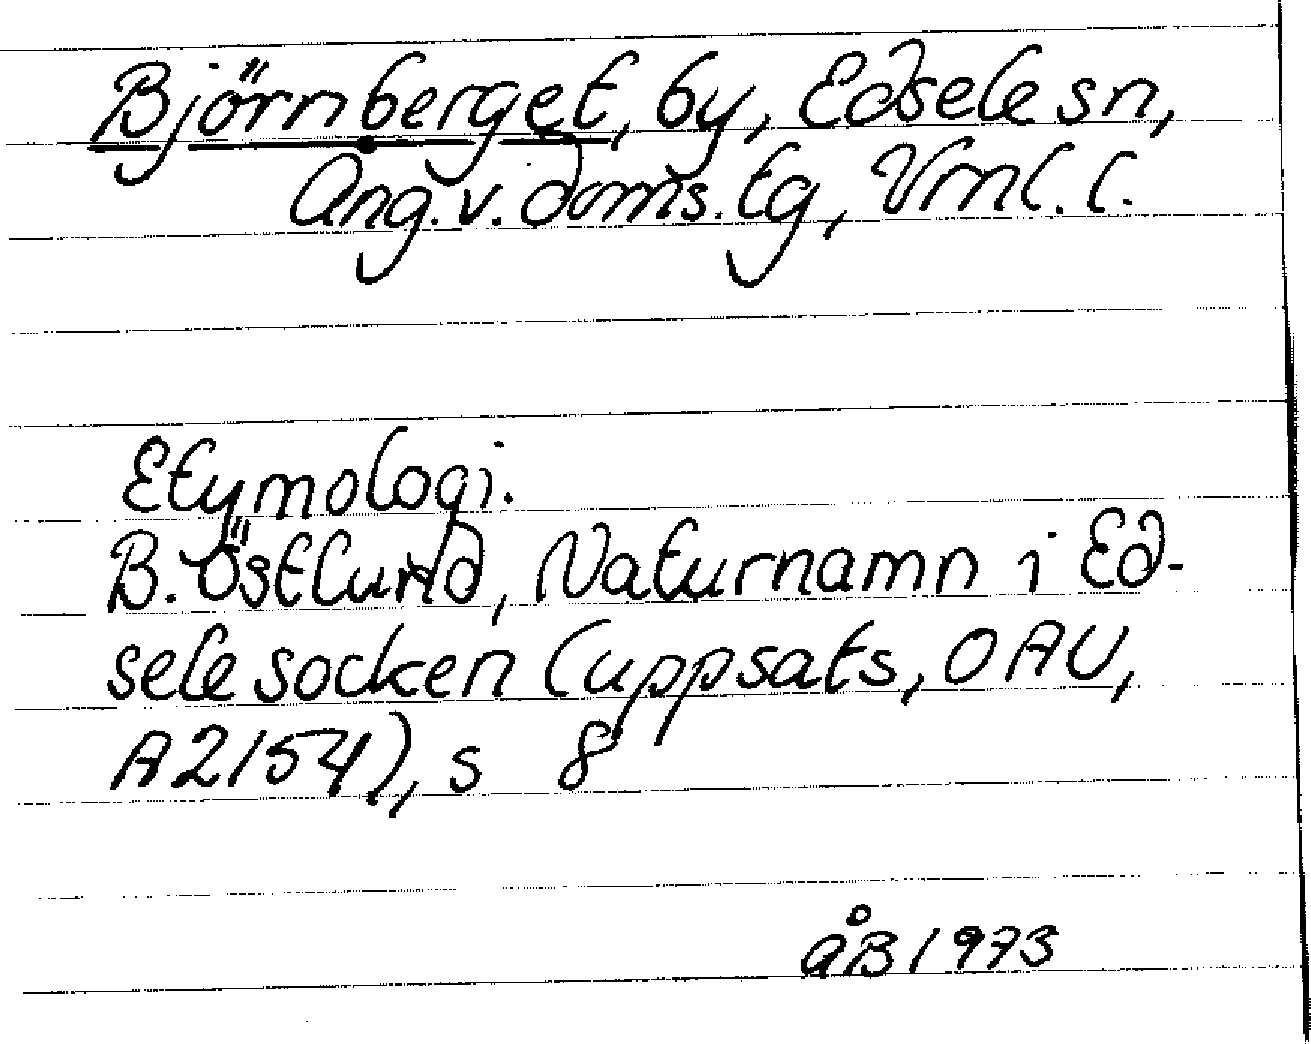 Björnberget, by, Edsele sn,
Ång.v. doms. tg, Vrnl. l.
Etymologi.
B. Östlund, Naturnamn i Ed-
sele socken (uppsats, OAU,
A2154), s 8
åB 1973